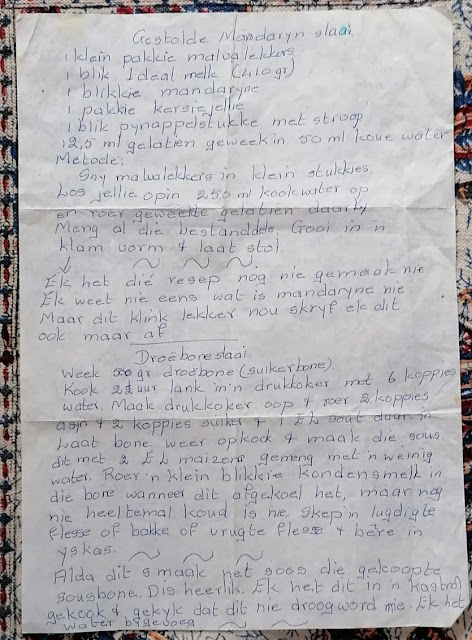 Gestolde Mandaryn slaai.
1 klein pakkie malvalekkers
1 blik Ideal melk (410gr)
1 blikkie mandaryne
1 pakkie kersiejellie
1 blik pynappelstukke met stroop
12,5 ml gelatien geweek in 50 ml koue water
Metode:
Sny malvalekkers in klein stukkies
Los jellie op in 250 ml kookwater op
en roer geweekte gelatien daarby
Meng al die bestanddele. Gooi in 'n
klam vorm & laat stol.
Ek het dié resep nog nie gemaak nie
Ek weet nie eens wat is mandaryne nie
Maar dit klink lekker nou skryf ek dit
ook maar af
Droëboneslaai.
Week 500 gr droëbone (suikerbone)
Kook 2½ uur lank in 'n drukkoker met 6 koppies
water. Maak drukkoker oop & roer 2 koppies
asyn & 2 koppies suiker & 1 E L sout daar in
Laat bone weer opkook & maak die sous
dit met 2 E L maizena gemeng met 'n weinig
water. Roer 'n klein blikkie kondensmelk in
die bone wanneer dit afgekoel het, maar nog
nie heeltemal koud is nie. Skep in lugdigte
flesse of bakke of vrugte flesse & bêre in
yskas.
Alda dit smaak net soos die gekoopte
sousbone. Dis heerlik. Ek het dit in 'n kastrol
gekook & gekyk dat dit nie droog word nie. Ek het
water bygevoeg